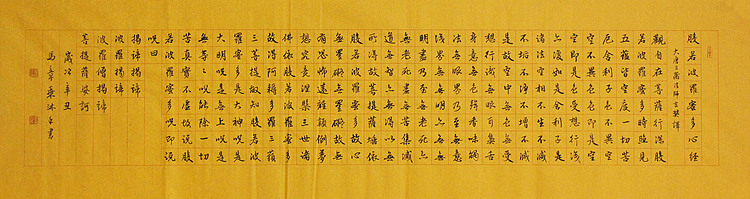 般若波羅蜜多心經
大唐三藏法師玄奘譯
觀自在菩薩行深般
若波羅蜜多時照見
五蘊皆空度一切苦
厄舍利子色不異空
空不異色色即是空
空即是色受想行識
亦復如是舍利子是
諸法空相不生不滅
不垢不淨不增不減
是故空中無色無受
想行識無眼耳鼻舌
身意無色聲香味觸
法無眼界乃至無意
識界無無明亦無無
明盡乃至無老死亦
無老死盡無苦集滅
道無智亦無得以無
所得故菩提薩埵依
般若波羅蜜多故心
無罣礙無罣礙故無
有恐怖遠離顛倒夢
想究竟涅槃三世諸
佛依般若波羅蜜多
故得阿耨多羅三藐
三菩提故知般若波
羅蜜多是大神咒是
大明咒是無上咒是
無等々咒能除一切
苦真實不虛故說般
若波羅蜜多咒即說
咒曰
揭諦揭諦
波羅揭諦
波羅僧揭諦
菩提薩婆訶
歲次辛丑
沐手書